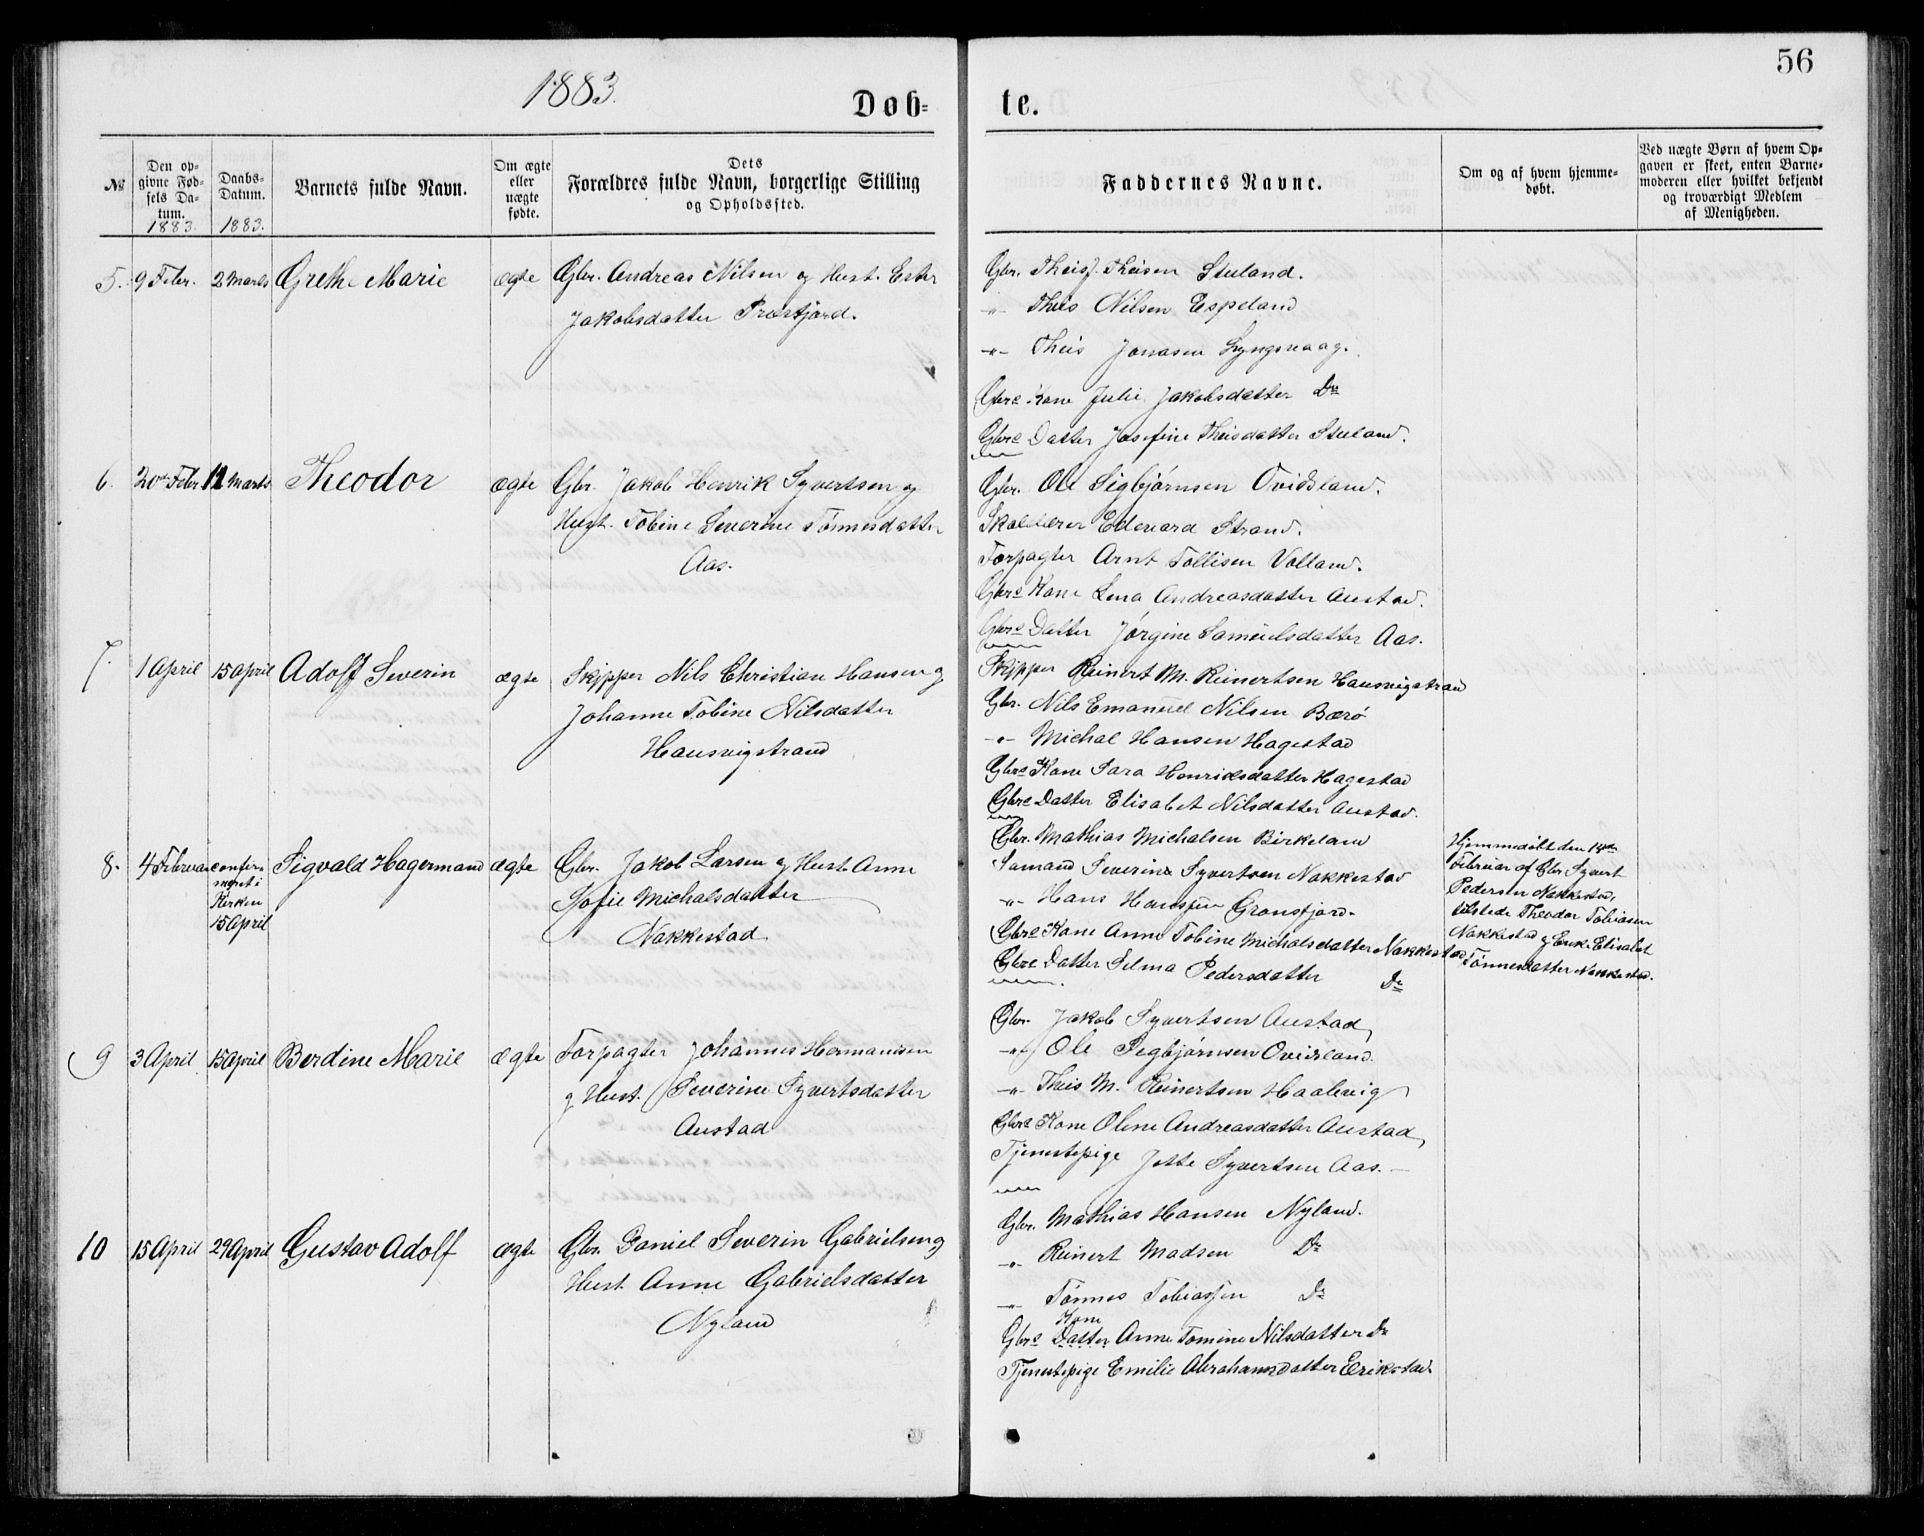 1883.
Døb-
№
Den op-
givne Fød-
sels Da-
tum.
1883.
Daabs-
Datum.
1883.
Barnets fulde Navn.
Om ægte
eller
uægte
fødte.
Dets
Forældres fulde Navn, borgerlige Stilling
og Opholdssted.
5. 9 Febr. 2 Marts Grethe Marie ægte Gbr. Andreas Nilsen og Hust. Ester
Jakobsdatter Præstfjord.
6. 20de Febr 11 Marts Theodor ægte Gbr. Jakob Henrik Syvertsen og
Hust. Tobine Severine Tønnesdatter
Aas.
7. 1 April 15 April Adolf Severin ægte Skipper Nils Christian Hansen og
Johanne Tobine Nilsdatter
Hausvigstrand
8. 4 Februar confir-
meret i
Kirken
15 April
Sigvald Hagermand ægte Gbr. Jakob Larsen og Hust. Anne
Sofie Michalsdatter
Nakkestad
9 3 April 15 April Berdine Marie ægte Forpagter Johannes Hermansen
og Hust. Severine Syvertsdatter
Austad
10 15 April 29 April Gustav Adolf ægte Gbr. Daniel Severin Gabrielsen og
Hust Anne Gabrielsdatter
Nyland
56
te.
Faddernes Navne.
Om og af hvem hjemme-
døbt.
Ved uægte Børn af hvem Op-
gaven er skeet, enten Barne-
moderen eller hvilket bekjendt
og troværdigt Medlem
af Menigheden.
Gbr. Theis J. Theisen Stuland.
-"- Theis Nilsen Espeland
-"- Theis Jonasen Lyngsvaag.
Gbrs Kone Julie Jakobsdatter Do
Gbrs Datter Josefine Theisdatter Stuland.
Gbr. Ole Sigbjørnsen Ovidsland.
Skolelærer Edevard Strand.
Forpagter Arnt Tollisen Volland.
Gbrs Kone Lena Andreasdatter Austad.
Gbrs Datter Jørgine Samuelsdatter Aas.
Skipper Reinert M. Reinertsen Hausvigstrand
Gbr. Nils Emanuel Nilsen Bærø
-"- Michal Hansen Hagestad
Gbrs Kone Sara Henriksdatter Hagestad
Gbrs Datter Elisabet Nilsdatter Austad.
Gbr. Mathias Michalsen Birkeland
Sømand Severin Syvertsen Nakkestad
-"- Hans Hansen Grønsfjord.
Gbrs Kone Anne Tobine Michalsdatter Nakkestad
Gbrs Datter Selma Pedersdatter Do
Hjemmedøbt den 14de
Februar af Gbr. Syvert
Pedersen Nakkestad,
tilstede Theodor Tobiasen
Nakkestad og Enke Elisabet
Tønnesdatter Nakkestad.
Gbr. Jakob Syvertsen Austad,
-"- Ole Sigbjørnsen Ovidsland.
-"- Theis M. Reinertsen Haalevig
Gbrs Kone Olene Andreasdatter Austad,
Tjenestepige Jette Syvertsen Aas.
Gbr. Mathias Hansen Nyland.
-"- Reinert Madsen Do
-"- Tønnes Tobiassen Do
Kone
Gbrs Datter Anne Tomine Nilsdatter Do
Tjenestepige Emilie Abrahamsdatter Erikstad